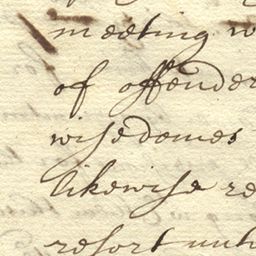 meeting w
of offender
wisedomes
likewise re
resort unt